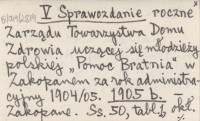 V Sprawozdanie roczne
Zarządu Towarzystwa Domu
Zdrowia uczącej się młodzieży
polskiej „Pomoc Bratnia" w
Zakopanem za rok administra-
cyjny 1904/05. 1905 b.
Zakopane. Ss. 50, tabl. okł.